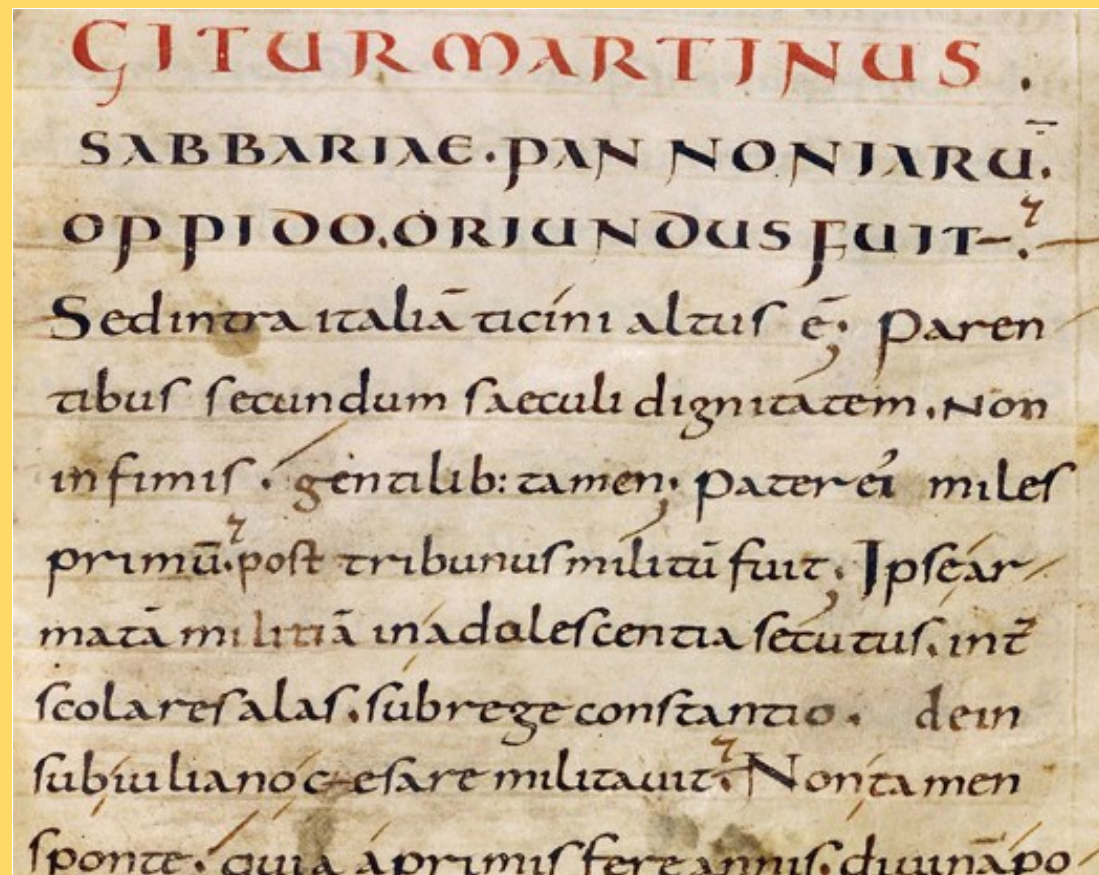 GITUR MARTINUS.
SABBARIAE. PAN NONIARŪ.
OPPIDO. ORIUNDUS FUIT.
Sed intra italiā ticini altus ē; Paren
tibus secundum saeculi dignitatem. Non
infimis. gentilib: tamen; Pater ei miles
primū. post tribunus militū fuit; Ipse ar
matā militiā in adolescentia secutus. int̄
scolares alas. sub rege constantio. dein
sub iuliano cęsare militauit. Non tamen
sponte. quia a primis fere annis. diuinā po